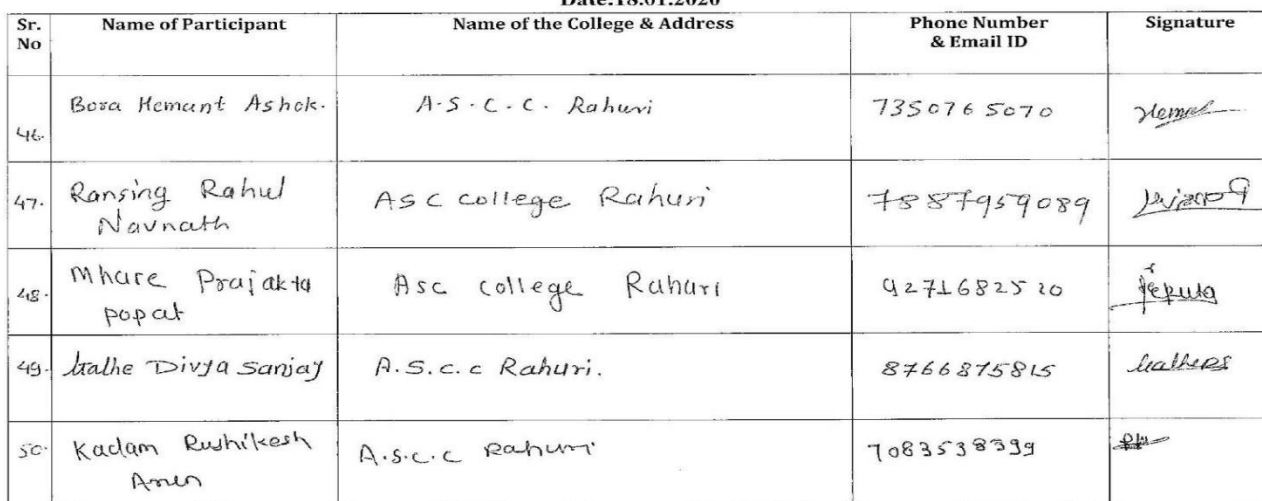 Date:18.01.2020
Sr. No Name of Participant Name of the College & Address Phone Number & Email ID Signature
46. Bora Hemant Ashok. A.S.C.C. Rahuri 7350765070
47. Ransing Rahul Navnath ASC college Rahuri 7887959089
48. Mhare Prajakta popat Asc college Rahuri 9271682520
49. Divya Sanjay A.S.c.c Rahuri. 8766875815
50. Kadam Rushikesh A.S.c.c Rahuri 7083538399